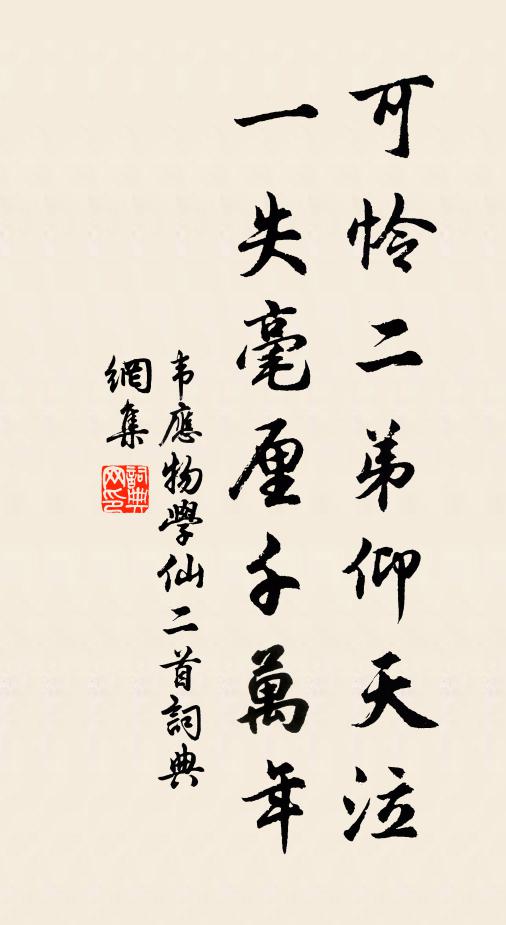 可憐二弟仰天泣
一失毫厘千萬年
韦應物學仙二首詞典
網集
詞典網印